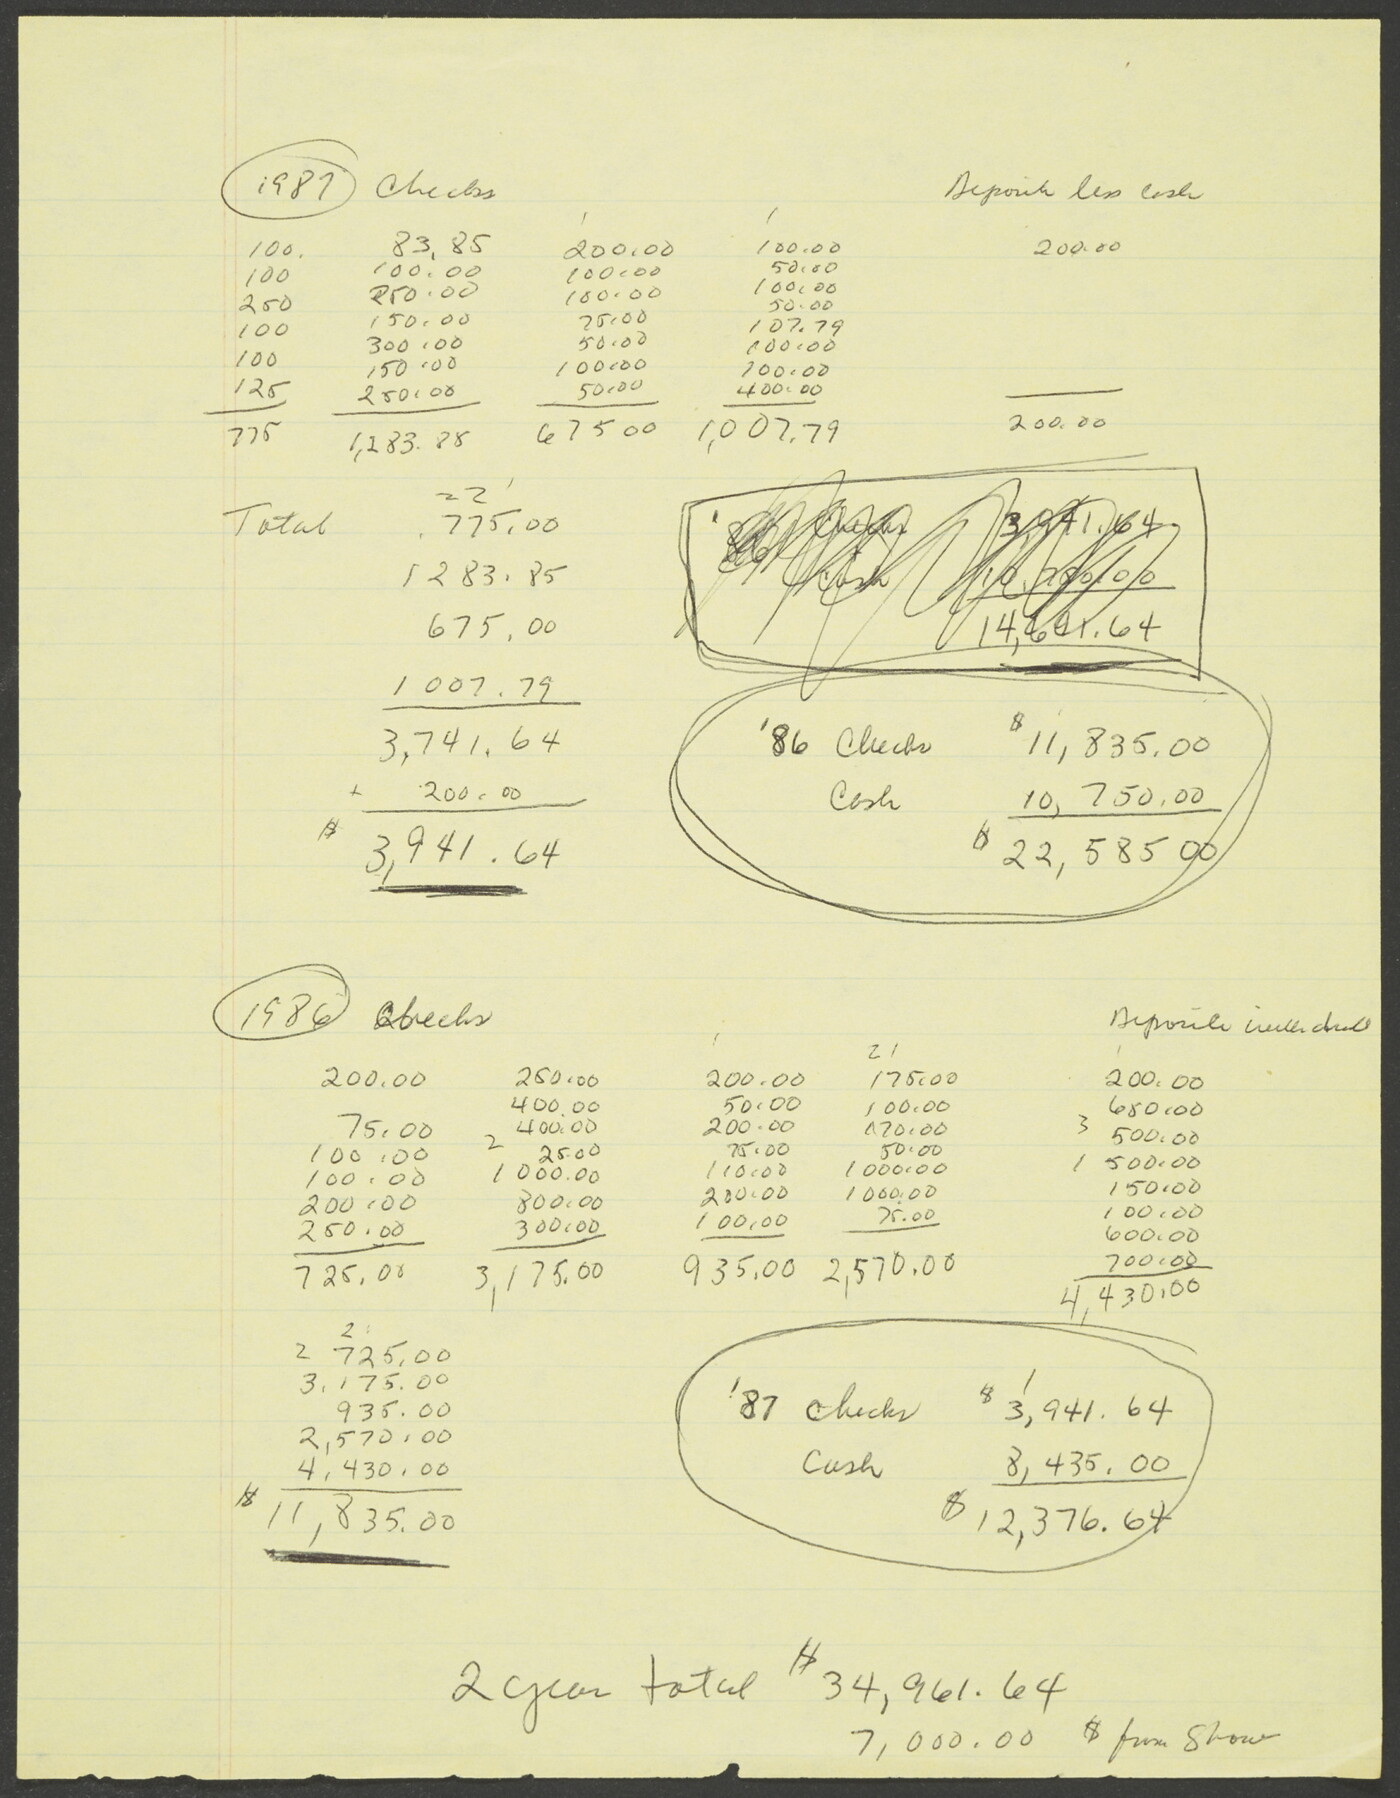 1987 Checks Deposits less cash
100. 83.85 200.00 100.00 200.00
100 100.00 100.00 50.00
250 250.00 100.00 100.00
100 150.00 75.00 50.00
100 300.00 50.00 107.79
125 150.00 100.00 100.00
250.00 50.00 100.00
400.00
775 1,283.85 675 00 1,007.79 200.00
Total 775.00
1283.85
675.00
1007.79
3,741.64
+ 200.00
$ 3,941.64
'86 Checks 3,941.64
Cash
14,691.64
'86 Checks $ 11,835.00
Cash 10,750.00
$ 22,585 00
1986 Checks Deposits
200.00 250.00 200.00 175.00 200.00
75.00 400.00 50.00 100.00 680.00
100.00 400.00 200.00 170.00 500.00
100.00 25.00 75.00 50.00 1500.00
200.00 1000.00 110.00 1000.00 150.00
250.00 800.00 200.00 1000.00 100.00
300.00 100.00 75.00 600.00
700.00
725.00 3,175.00 935.00 2,570.00 4,430.00
725.00
3,175.00
935.00
2,570.00
4,430.00
$ 11,835.00
'87 Checks $ 3,941.64
Cash 8,435.00
$ 12,376.64
2 year total $ 34,961.64
7,000.00 $ from Show